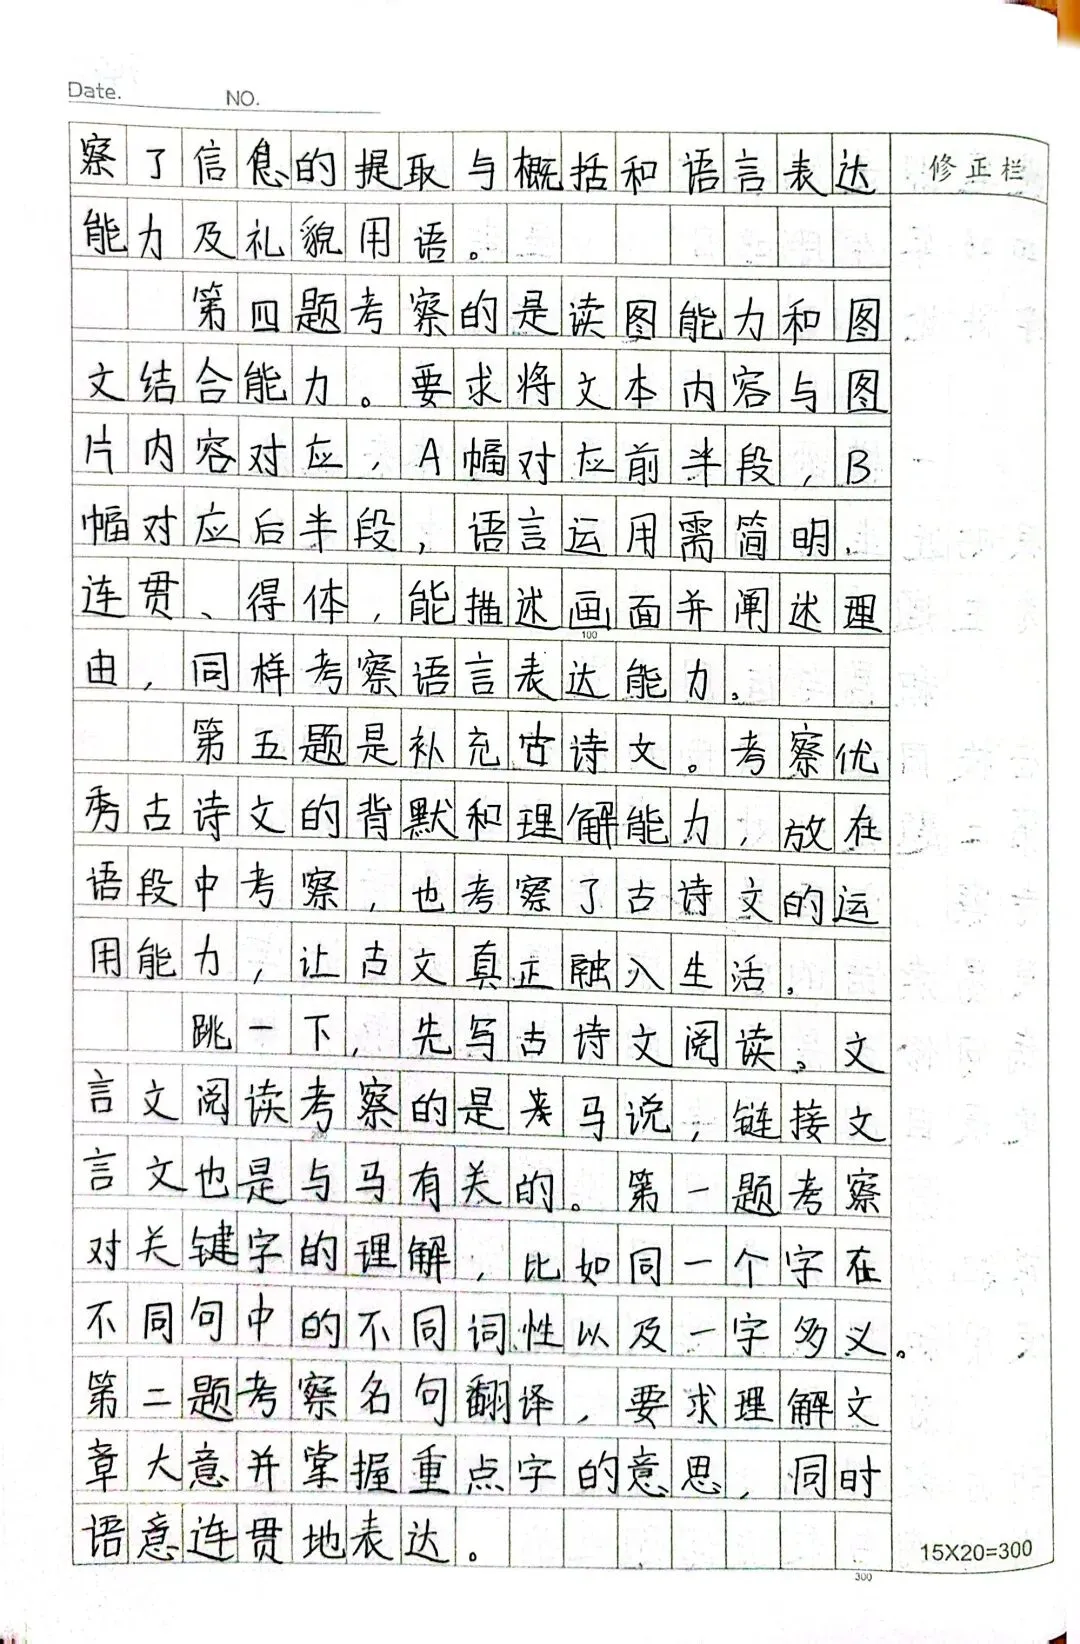 Date.
NO.
察了信息的提取与概括和语言表达
修正栏
能力及礼貌用语。
第四题考察的是读图能力和图
文结合能力。要求将文本内容与图
片内容对应,A幅对应前半段,B
幅对应后半段,语言运用需简明、
连贯、得体,能描述画面并阐述理
100
由,同样考察语言表达能力。
第五题是补充古诗文。考察优
秀古诗文的背默和理解能力,放在
语段中考察,也考察了古诗文的运
用能力,让古文真正融入生活。
跳一下,先写古诗文阅读。文
言文阅读考察的是马说,链接文
200
言文也是与马有关的。第一题考察
对关键字的理解,比如同一个字在
不同句中的不同词性以及一字多义。
第二题考察名句翻译,要求理解文
章大意并掌握重点字的意思,同时
语意连贯地表达。
15X20=300
300